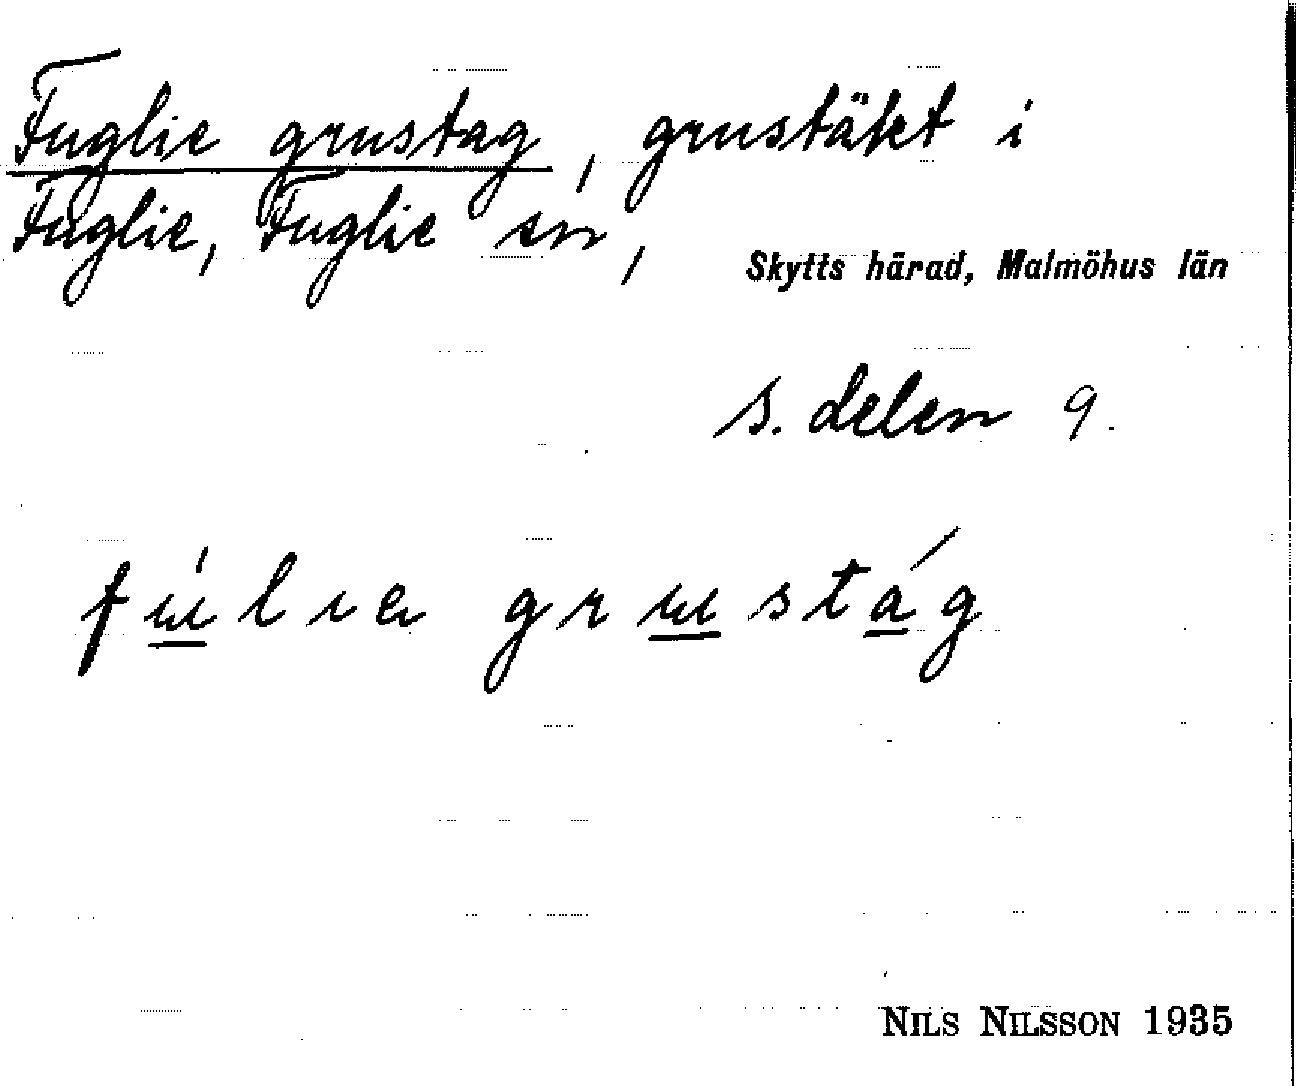 Fuglie grustag, grustäkt i
Fuglie, Fuglie sn,
Skytts härad, Malmöhus län
s. delen 9.
fúlıe grustág
NILS NILSSON 1935